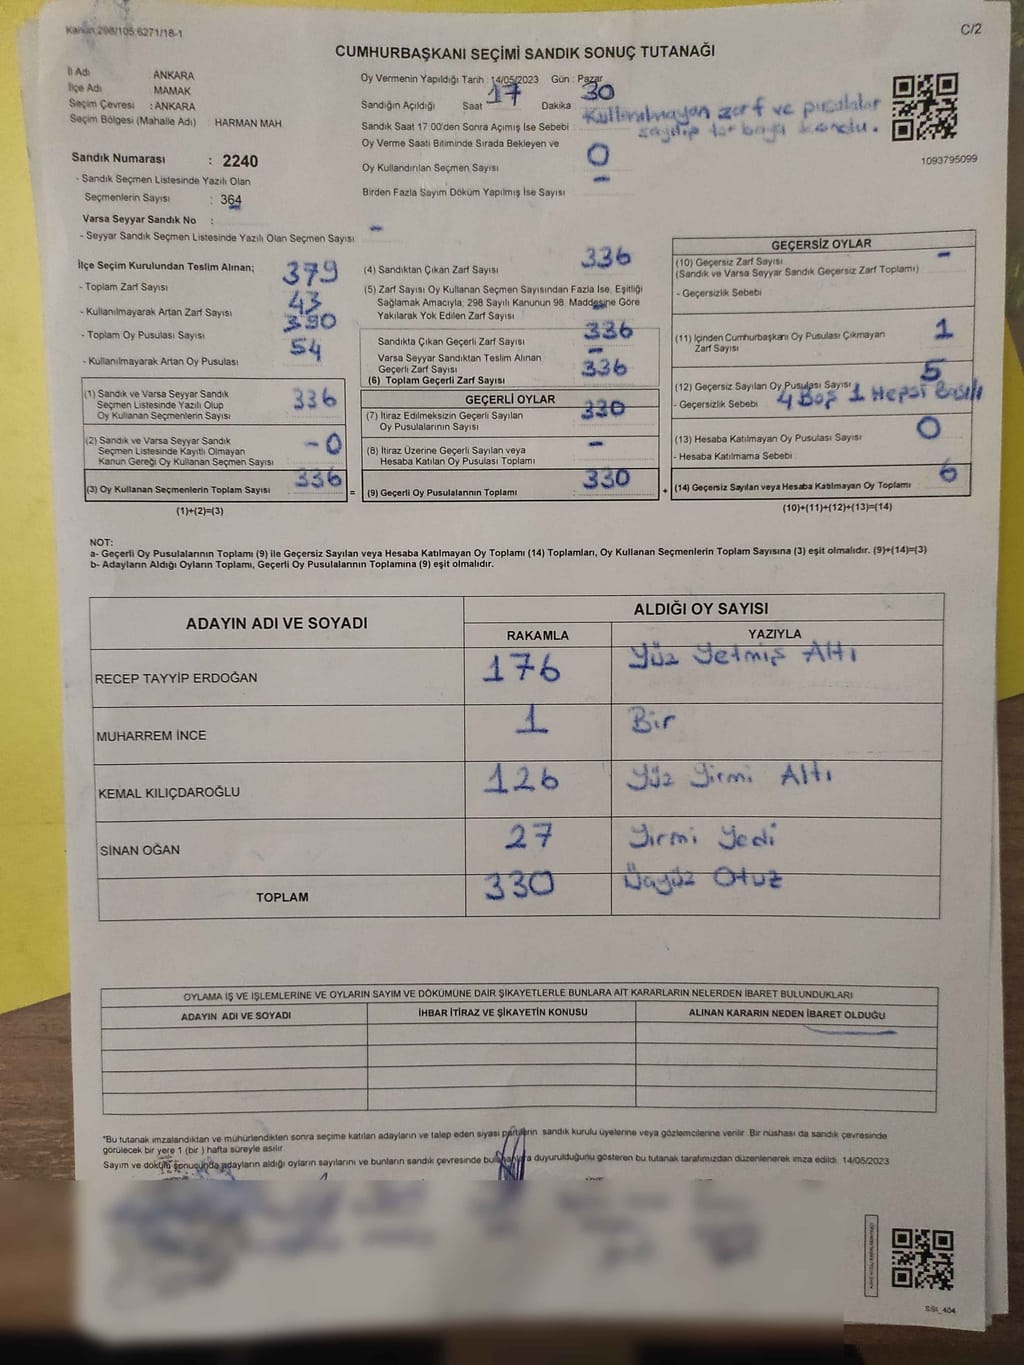 Kanun 298/105;6271/18-1
C/2
CUMHURBAŞKANI SEÇİMİ SANDIK SONUÇ TUTANAĞI
İl Adı : ANKARA
İlçe Adı : MAMAK
Seçim Çevresi : ANKARA
Seçim Bölgesi (Mahalle Adı) HARMAN MAH
Sandık Numarası : 2240
- Sandık Seçmen Listesinde Yazılı Olan
Seçmenlerin Sayısı : 364
Varsa Seyyar Sandık No :
- Seyyar Sandık Seçmen Listesinde Yazılı Olan Seçmen Sayısı -
Oy Vermenin Yapıldığı Tarih : 14/05/2023 Gün : Pazar
Sandığın Açıldığı Saat 17 Dakika 30
Sandık Saat 17:00'den Sonra Açımış İse Sebebi : Kullanılmayan zarf ve pusulalar
sayılıp torbaya kondu.
Oy Verme Saati Bitiminde Sırada Bekleyen ve
Oy Kullandırılan Seçmen Sayısı 0
Birden Fazla Sayım Döküm Yapılmış İse Sayısı -
1093795099
İlçe Seçim Kurulundan Teslim Alınan;
- Toplam Zarf Sayısı 379
- Kullanılmayarak Artan Zarf Sayısı 43
- Toplam Oy Pusulası Sayısı 390
- Kullanılmayarak Artan Oy Pusulası 54
(1) Sandık ve Varsa Seyyar Sandık
Seçmen Listesinde Yazılı Olup
Oy Kullanan Seçmenlerin Sayısı 336
(2) Sandık ve Varsa Seyyar Sandık
Seçmen Listesinde Kayıtlı Olmayan
Kanun Gereği Oy Kullanan Seçmen Sayısı - 0
(3) Oy Kullanan Seçmenlerin Toplam Sayısı 336 =
(1)+(2)=(3)
(4) Sandıktan Çıkan Zarf Sayısı 336
(5) Zarf Sayısı Oy Kullanan Seçmen Sayısından Fazla İse, Eşitliği
Sağlamak Amacıyla; 298 Sayılı Kanunun 98. Maddesine Göre
Yakılarak Yok Edilen Zarf Sayısı -
Sandıkta Çıkan Geçerli Zarf Sayısı 336
Varsa Seyyar Sandıktan Teslim Alınan
Geçerli Zarf Sayısı -
(6) Toplam Geçerli Zarf Sayısı 336
GEÇERLİ OYLAR
(7) İtiraz Edilmeksizin Geçerli Sayılan
Oy Pusulalarının Sayısı 330
(8) İtiraz Üzerine Geçerli Sayılan veya
Hesaba Katılan Oy Pusulası Toplamı -
(9) Geçerli Oy Pusulalarının Toplamı 330 +
GEÇERSİZ OYLAR
(10) Geçersiz Zarf Sayısı -
(Sandık ve Varsa Seyyar Sandık Geçersiz Zarf Toplamı)
- Geçersizlik Sebebi
(11) İçinden Cumhurbaşkanı Oy Pusulası Çıkmayan
Zarf Sayısı 1
(12) Geçersiz Sayılan Oy Pusulası Sayısı 5
- Geçersizlik Sebebi 4 Boş 1 Hepsi Basılı
(13) Hesaba Katılmayan Oy Pusulası Sayısı 0
- Hesaba Katılmama Sebebi
(14) Geçersiz Sayılan veya Hesaba Katılmayan Oy Toplamı 6
(10)+(11)+(12)+(13)=(14)
NOT:
a- Geçerli Oy Pusulalarının Toplamı (9) ile Geçersiz Sayılan veya Hesaba Katılmayan Oy Toplamı (14) Toplamları, Oy Kullanan Seçmenlerin Toplam Sayısına (3) eşit olmalıdır. (9)+(14)=(3)
b- Adayların Aldığı Oyların Toplamı, Geçerli Oy Pusulalarının Toplamına (9) eşit olmalıdır.
ADAYIN ADI VE SOYADI ALDIĞI OY SAYISI
RAKAMLA YAZIYLA
RECEP TAYYİP ERDOĞAN 176 Yüz Yetmiş Altı
MUHARREM İNCE 1 Bir
KEMAL KILIÇDAROĞLU 126 Yüz Yirmi Altı
SİNAN OĞAN 27 Yirmi Yedi
TOPLAM 330 Üçyüz Otuz
OYLAMA İŞ VE İŞLEMLERİNE VE OYLARIN SAYIM VE DÖKÜMÜNE DAİR ŞİKAYETLERLE BUNLARA AİT KARARLARIN NELERDEN İBARET BULUNDUKLARI
ADAYIN ADI VE SOYADI İHBAR İTİRAZ VE ŞİKAYETİN KONUSU ALINAN KARARIN NEDEN İBARET OLDUĞU
*Bu tutanak imzalandıktan ve mühürlendikten sonra seçime katılan adayların ve talep eden siyasi partilerin sandık kurulu üyelerine veya gözlemcilerine verilir. Bir nüshası da sandık çevresinde
görülecek bir yere 1 (bir) hafta süreyle asılır.
Sayım ve döküm sonucunda adayların aldığı oyların sayılarını ve bunların sandık çevresinde bulunanlara duyurulduğunu gösteren bu tutanak tarafımızdan düzenlenerek imza edildi. 14/05/2023
SSt_404